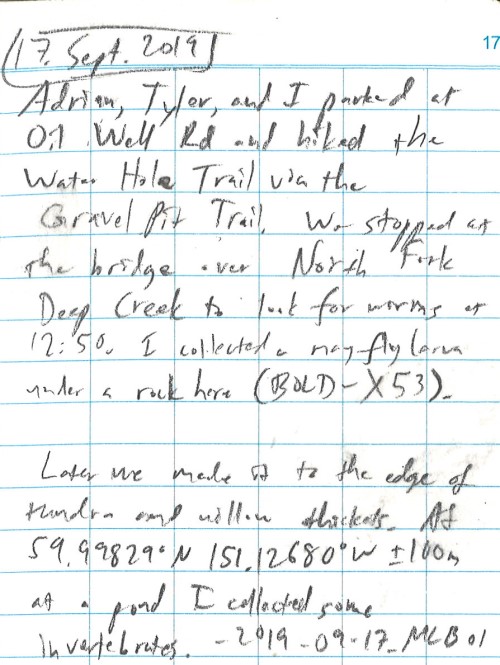 17
17. Sept. 2019
Adrian, Tyler, and I parked at
Oil Well Rd and hiked the
Water Hole Trail via the
Gravel Pit Trail. We stopped at
the bridge over North Fork
Deep Creek to look for worms at
12:50. I collected a mayfly larva
under a rock here (BOLD-X53).
Later we made it to the edge of
tundra and willow thickets. At
59.99829°N 151.12680°W ±100m
at a pond I collected some
invertebrates. -2019-09-17_MLB01